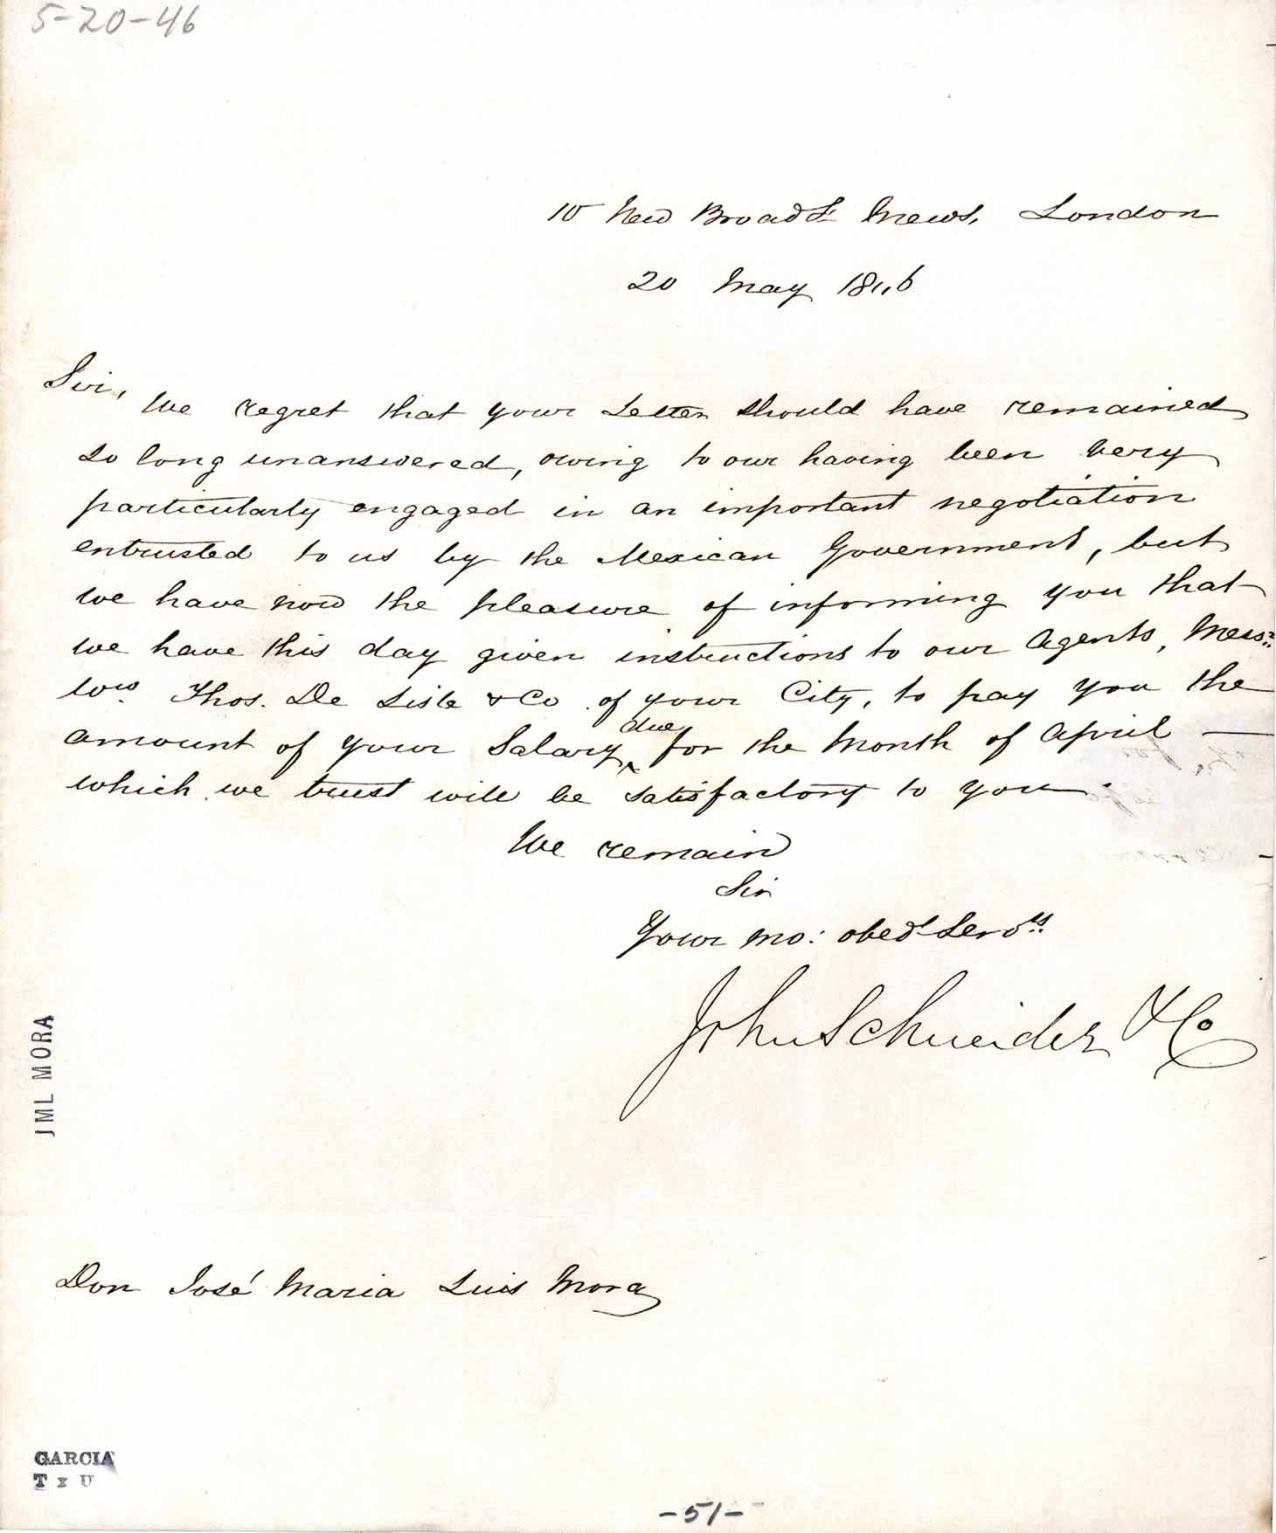 5-20-46
10 New Broad St. Mews, London
20 May 1846
Sir,
We regret that your Letter should have remained
so long unanswered, owing to our having been very
particularly engaged in an important negotiation
entrusted to us by the Mexican Government, but
we have now the pleasure of informing you that
we have this day given instructions to our Agents, Mess:rs
Thos. De Lisle & Co of your City, to pay you the
due
amount of your Salary ^ for the Month of April —
which we trust will be satisfactory to you.
We remain
Sir
Your mo: obedt Servts
John Schneider & Co
JML MORA
Don José Maria Luis Mora
GARCIA
T x U
-51-